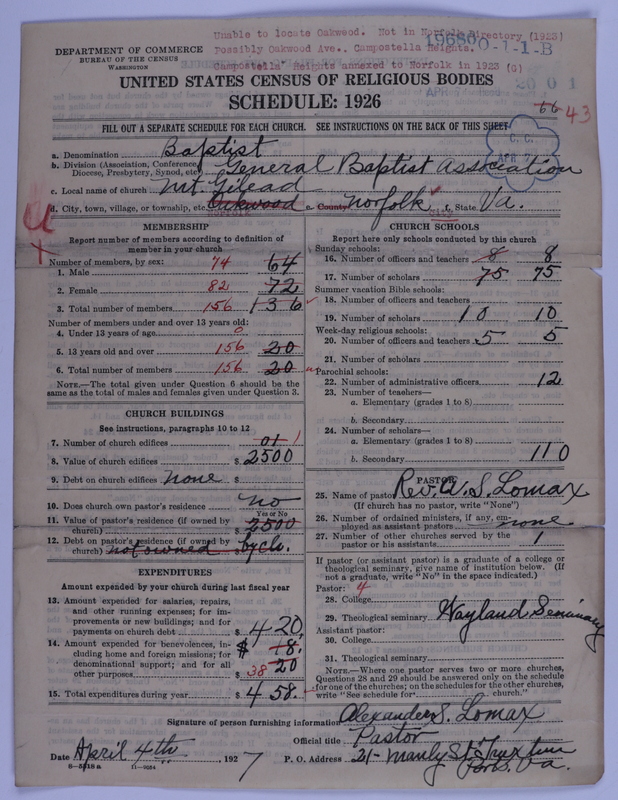 Unable to locate Oakwood. Not in Norfolk Directory (1923)
Possibly Oakwood Ave., Campostella Heights.
Campostella Heights annexed to Norfolk in 1923 (G)
196800-1-1-B
DEPARTMENT OF COMMERCE
BUREAU OF THE CENSUS
WASHINGTON
UNITED STATES CENSUS OF RELIGIOUS BODIES
SCHEDULE: 1926
66 43
FILL OUT A SEPARATE SCHEDULE FOR EACH CHURCH. SEE INSTRUCTIONS ON THE BACK OF THIS SHEET
C. C.
a. Denomination Baptist
b. Division (Association, Conference, Diocese, Presbytery, Synod, etc.) General Baptist Association
c. Local name of church Mt. Gilead
d. City, town, village, or township, etc. Oakwood e. County Norfolk f. State Va.
MEMBERSHIP
Report number of members according to definition of
member in your church
Number of members, by sex:
1. Male 74 64
2. Female 82 72
3. Total number of members 156 136
Number of members under and over 13 years old:
4. Under 13 years of age
5. 13 years old and over 156 20
6. Total number of members 156 20
NOTE.—The total given under Question 6 should be the
same as the total of males and females given under Question 3.
CHURCH BUILDINGS
See instructions, paragraphs 10 to 12
7. Number of church edifices 01 1
8. Value of church edifices $ 2500
9. Debt on church edifices none $
10. Does church own pastor's residence no
Yes or No
11. Value of pastor's residence (if owned by church) $ 2500
12. Debt on pastor's residence (if owned by church) not owned $ by ch.
EXPENDITURES
Amount expended by your church during last fiscal year
13. Amount expended for salaries, repairs,
and other running expenses; for im-
provements or new buildings; and for
payments on church debt $ 420.
14. Amount expended for benevolences, in-
cluding home and foreign missions; for
denominational support; and for all
other purposes $ 18. 38 20
15. Total expenditures during year $ 458.
CHURCH SCHOOLS
Report here only schools conducted by this church
Sunday schools:
16. Number of officers and teachers 8 8
17. Number of scholars 75 75
Summer vacation Bible schools:
18. Number of officers and teachers
19. Number of scholars 10 10
Week-day religious schools:
20. Number of officers and teachers 5 5
21. Number of scholars
Parochial schools:
22. Number of administrative officers 12
23. Number of teachers—
a. Elementary (grades 1 to 8)
b. Secondary
24. Number of scholars—
a. Elementary (grades 1 to 8)
b. Secondary 110
PASTOR
25. Name of pastor Rev. A. S. Lomax
(If church has no pastor, write "None")
26. Number of ordained ministers, if any, em-
ployed as assistant pastors none
27. Number of other churches served by the
pastor or his assistants 1
If pastor (or assistant pastor) is a graduate of a college or
theological seminary, give name of institution below. (If
not a graduate, write "No" in the space indicated.)
Pastor: 4
28. College
29. Theological seminary Wayland Seminary
Assistant pastor:
30. College
31. Theological seminary
NOTE.—Where one pastor serves two or more churches,
Questions 28 and 29 should be answered only on the schedule
for one of the churches; on the schedules for the other churches,
write "See schedule for church."
Signature of person furnishing information Alexander S. Lomax
Official title Pastor
Date April 4th, 1927
P. O. Address 21 Manly St. Truxtun
Ports. Va.
8—5518 a 11—9054